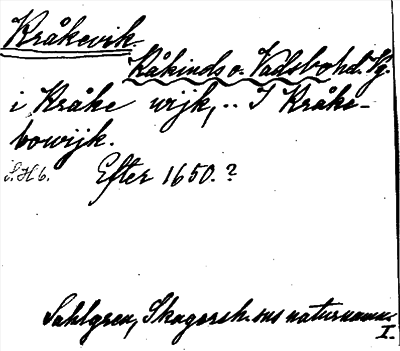 Kråkevik.
Kåkinds o. Vadsbo hd. Vg.
i Kråke wijk, .. I Kråke-
bowijk.
S.H 6. Efter 1650.?
Sahlgren, Skagersh. sns naturnamn
I.